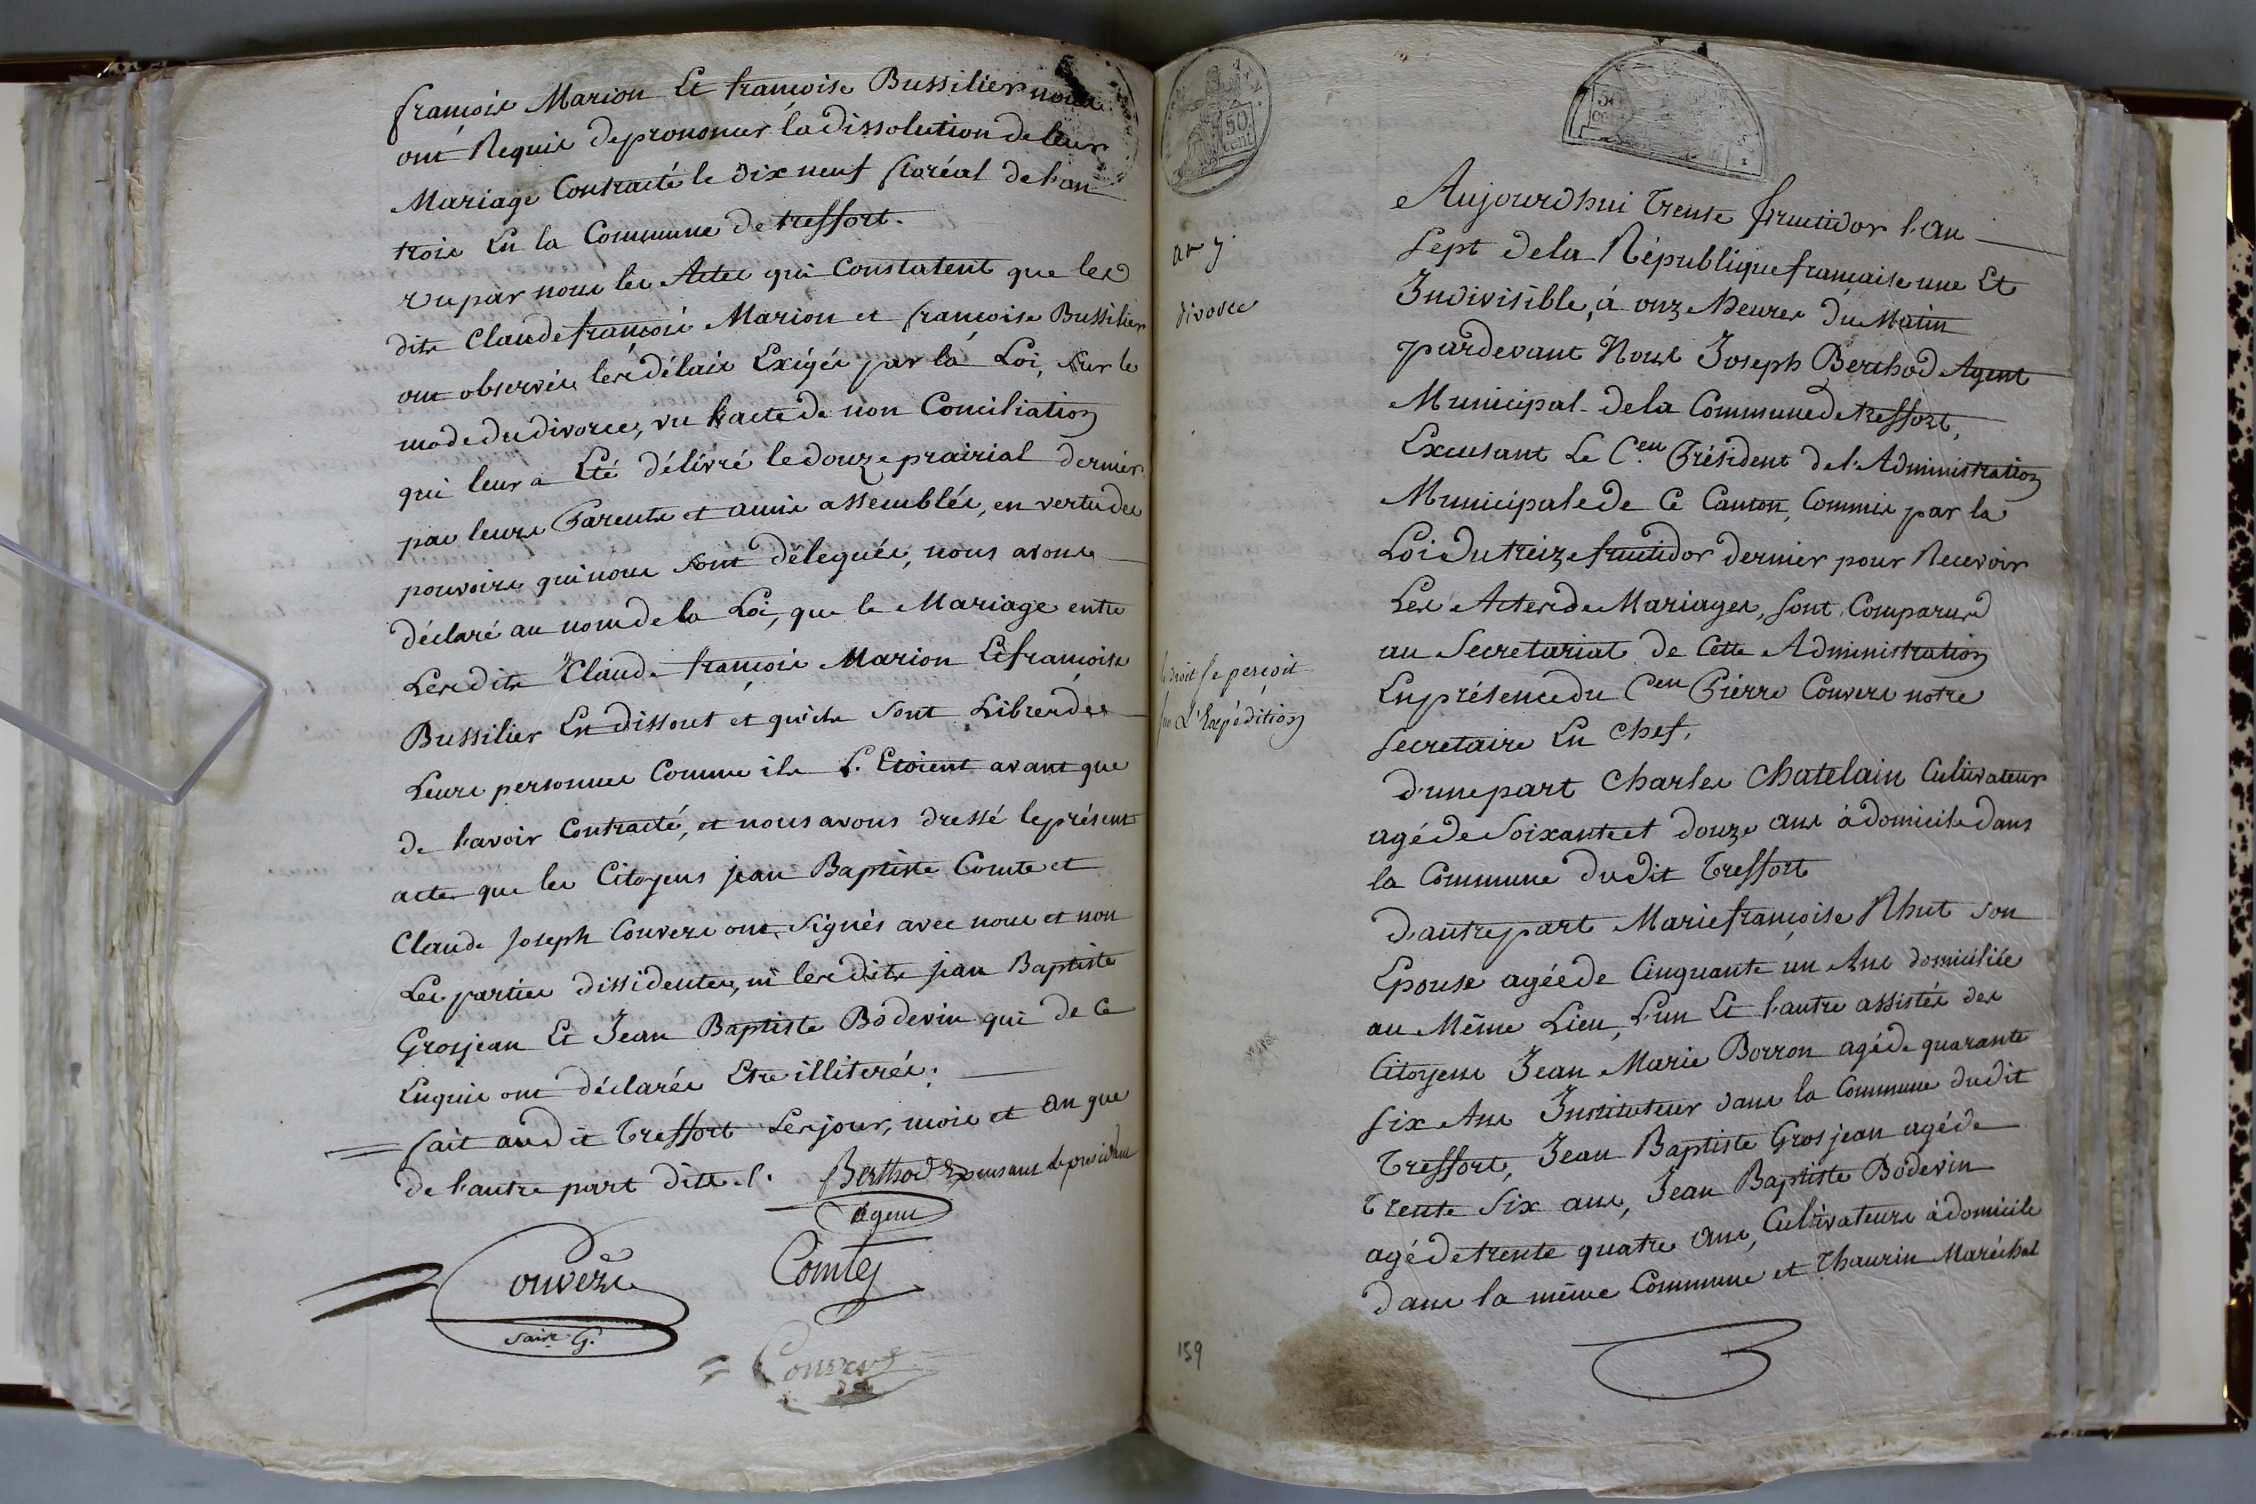 françois Marion Et françoise Bussilier nous
ont Requis de prononcer la dissolution de leur
Mariage Contracté le dix neuf floréal de l'an
trois En la Commune de treffort.
vu par nous les Actes qui Constatent que les
dits Claude françois Marion et françoise Bussilier
ont observés les délais Exigés par la Loi, sur le
mode du divorce, vu l'acte de non Conciliation
qui leur a Eté délivré le douze prairial dernier
par leurs Parents et amis assemblés, en vertu des
pouvoirs qui nous sont délegués, nous avons
déclaré au nom de la Loi, que le Mariage entre
Les dits Claude françois Marion Et françoise
Bussilier En dissout et qu'ils sont Libres de
Leurs personnes Comme ils L'Etoient avant que
de l'avoir Contracté, et nous avons dressé le présent
acte que les Citoyens jean Baptiste Comte et
Claude Joseph Convers ont Signés avec nous et non
Les parties dissidentes, ni les dits jean Baptiste
Grosjean Et Jean Baptiste Bodevin qui de Ce
Enquis ont déclarés Etre illiterés;
fait audit Treffort Les jour, mois et an que
de l'autre part dits.
Berthod Excusant le président
agent
Convers
Comte
Sair. G.
Convers
50 cent
an 7
divorce
le droit se perçoit
sur L'Expédition
159
Aujourdhui Trente fructidor l'an
sept de la République française une Et
Indivisible, à onze heures du Matin
pardevant Nous Joseph Berthod Agent
Municipal de la Commune de treffort,
Excusant Le Cen Président de l'Administration
Municipale de Ce Canton, Commis par la
Loi du treize fructidor dernier pour Recevoir
Les Actes de Mariages, sont Comparus
au Secretariat de Cette Administration
En présence du Cen Pierre Convers notre
Secretaire En chef,
d'une part Charles Chatelain Cultivateur
agé de Soixante et douze ans à domicile dans
la Commune dudit Treffort
d'autre part Marie françoise Rhut son
Epouse agée de Cinquante un Ans domiciliée
au Même Lieu, L'un Et l'autre assistés des
Citoyens Jean Marie Borron agé de quarante
six Ans Instituteur dans la Commune dudit
Treffort, Jean Baptiste Grosjean agé de
Trente Six ans, Jean Baptiste Bodevin
agé de trente quatre Ans, Cultivateurs à domicile
dans la même Commune et Thaurin Maréchal